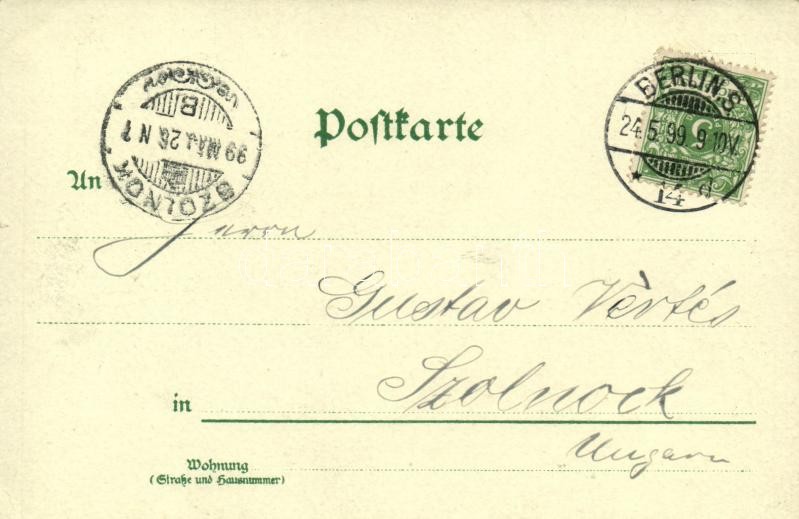 BERLIN.S.
24.5.99.9-10V.
* 14 d
5
SZOLNOK
99 MAJ 26 N 7
B
Postkarte
An
Herrn
Gustav Vértés
in Szolnock
Ungarn
Wohnung
(Straße und Hausnummer)